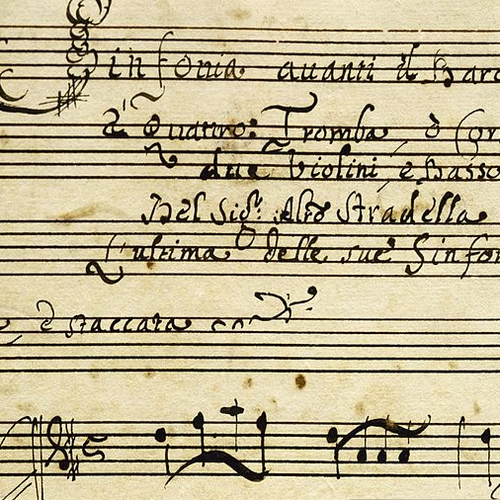 Sinfonia avanti il Barc
à Quattro: Tromba, ò Cor
due Violini, e Basso
Del Sig.r Aless.o Stradella
L'ultima delle sue Sinfon
, è staccata